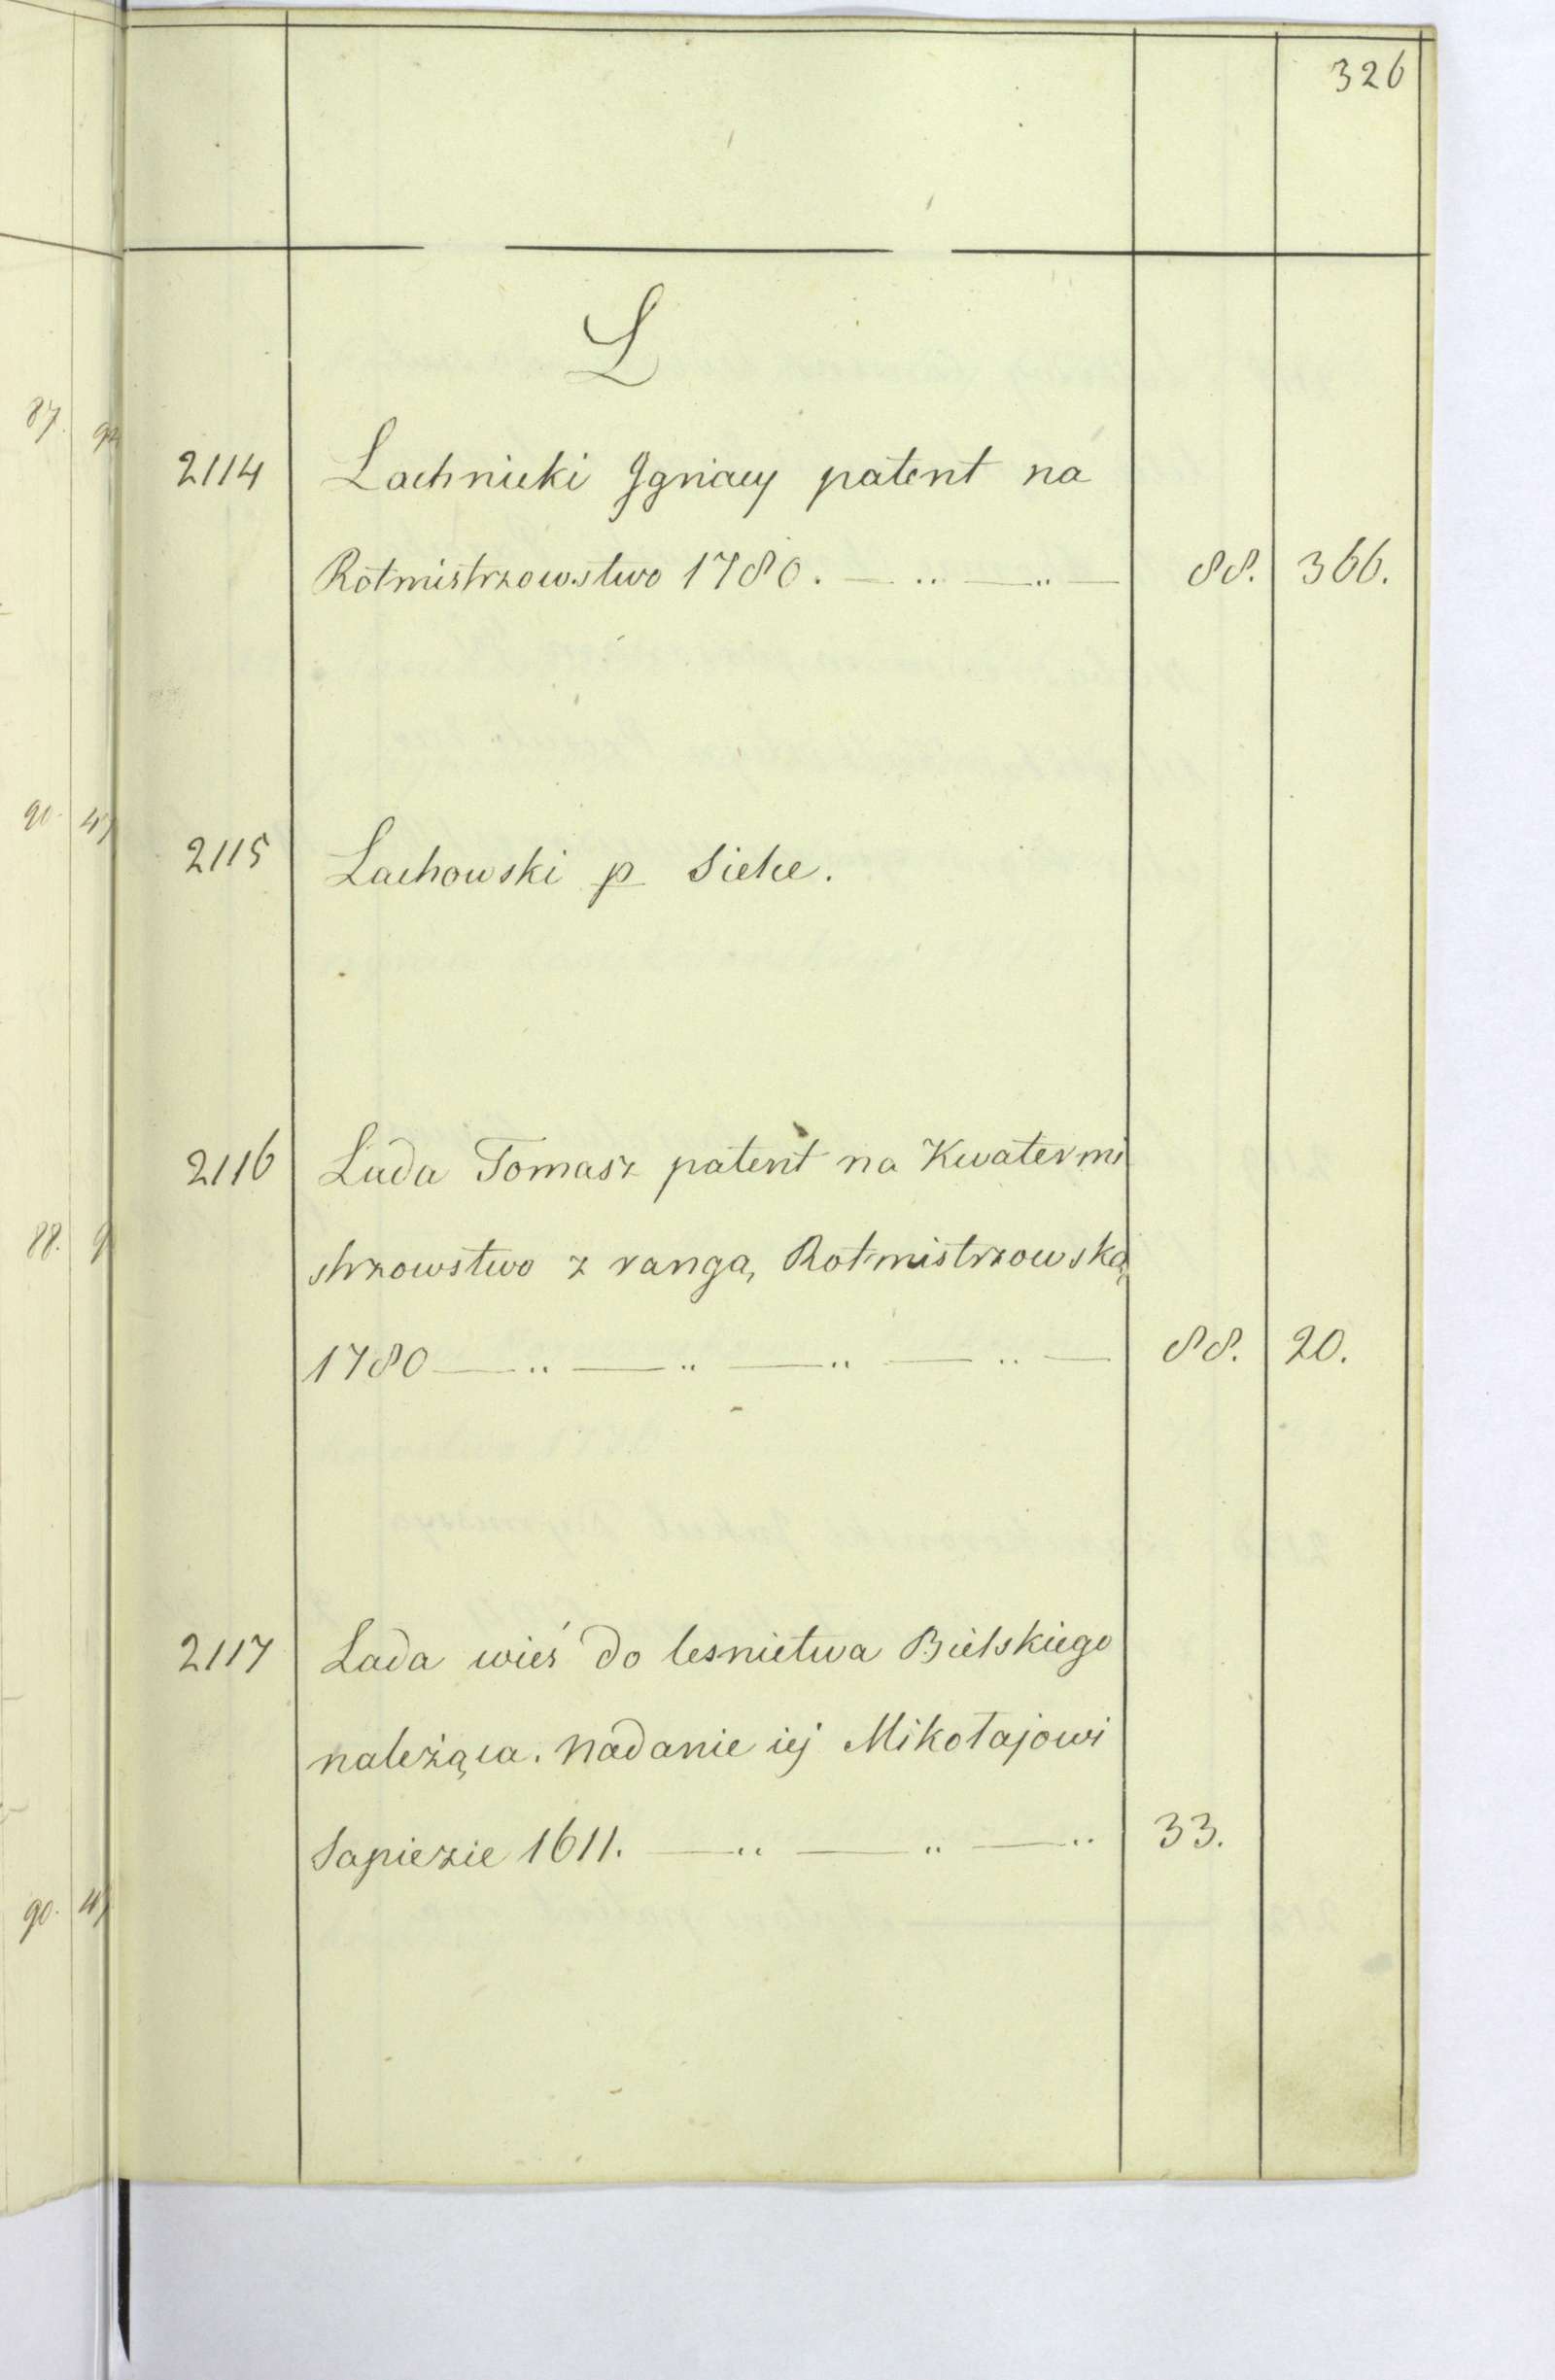 326
L
2114 Lachnicki Ignacy patent na
Rotmistrzowstwo 1780. — „ — „ — 88. 366.
2115 Lachowski p Siehe.
2116 Lada Tomasz patent na Kwatermi
strzowstwo z rangą Rotmistrzowską
1780 — „ — „ — „ — „ — 88. 20.
2117 Lada wieś do lesnictwa Bielskiego
należąca. nadanie iej Mikołajowi
Sapiezie 1611. — „ — „ — „ 33.
87.
90. 47
88.
90. 47